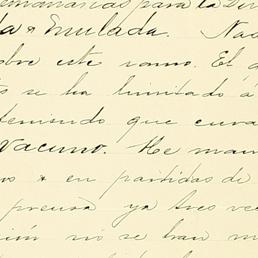 para la Dir
da & Emulada. Nad
obre este ramo. El d
se ha limitado á
teniendo que cura
vacuno. He man
os & en partidas de
prensa ya tres ve
ión no se han m